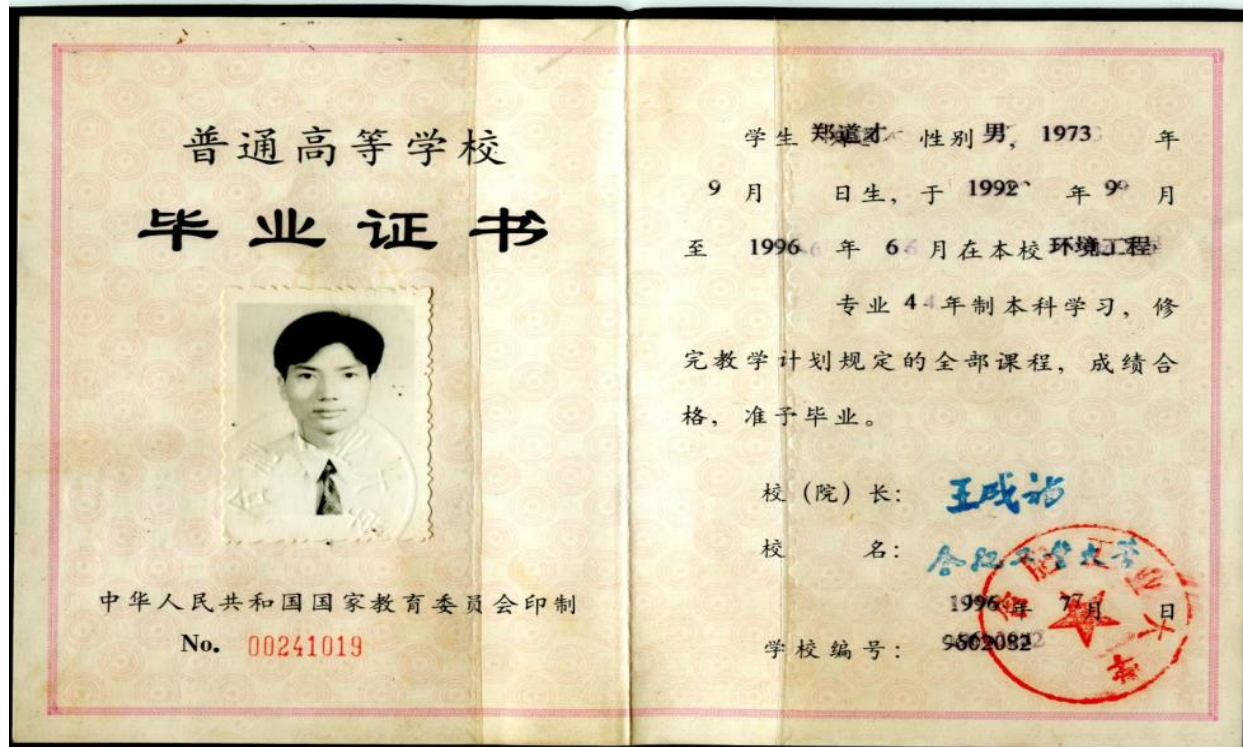 普通高等学校
毕业证书
中华人民共和国国家教育委员会印制
No. 00241019
学生 郑道才 性别 男, 1973 年
9 月 日生, 于 1992 年 9 月
至 1996 年 6 月在本校 环境工程
专业 4 年制本科学习, 修
完教学计划规定的全部课程, 成绩合
格, 准予毕业。
校(院)长: 王成福
校 名: 合肥工业大学
1996 年 7 月 日
学校编号: 9602032
合肥工业大学